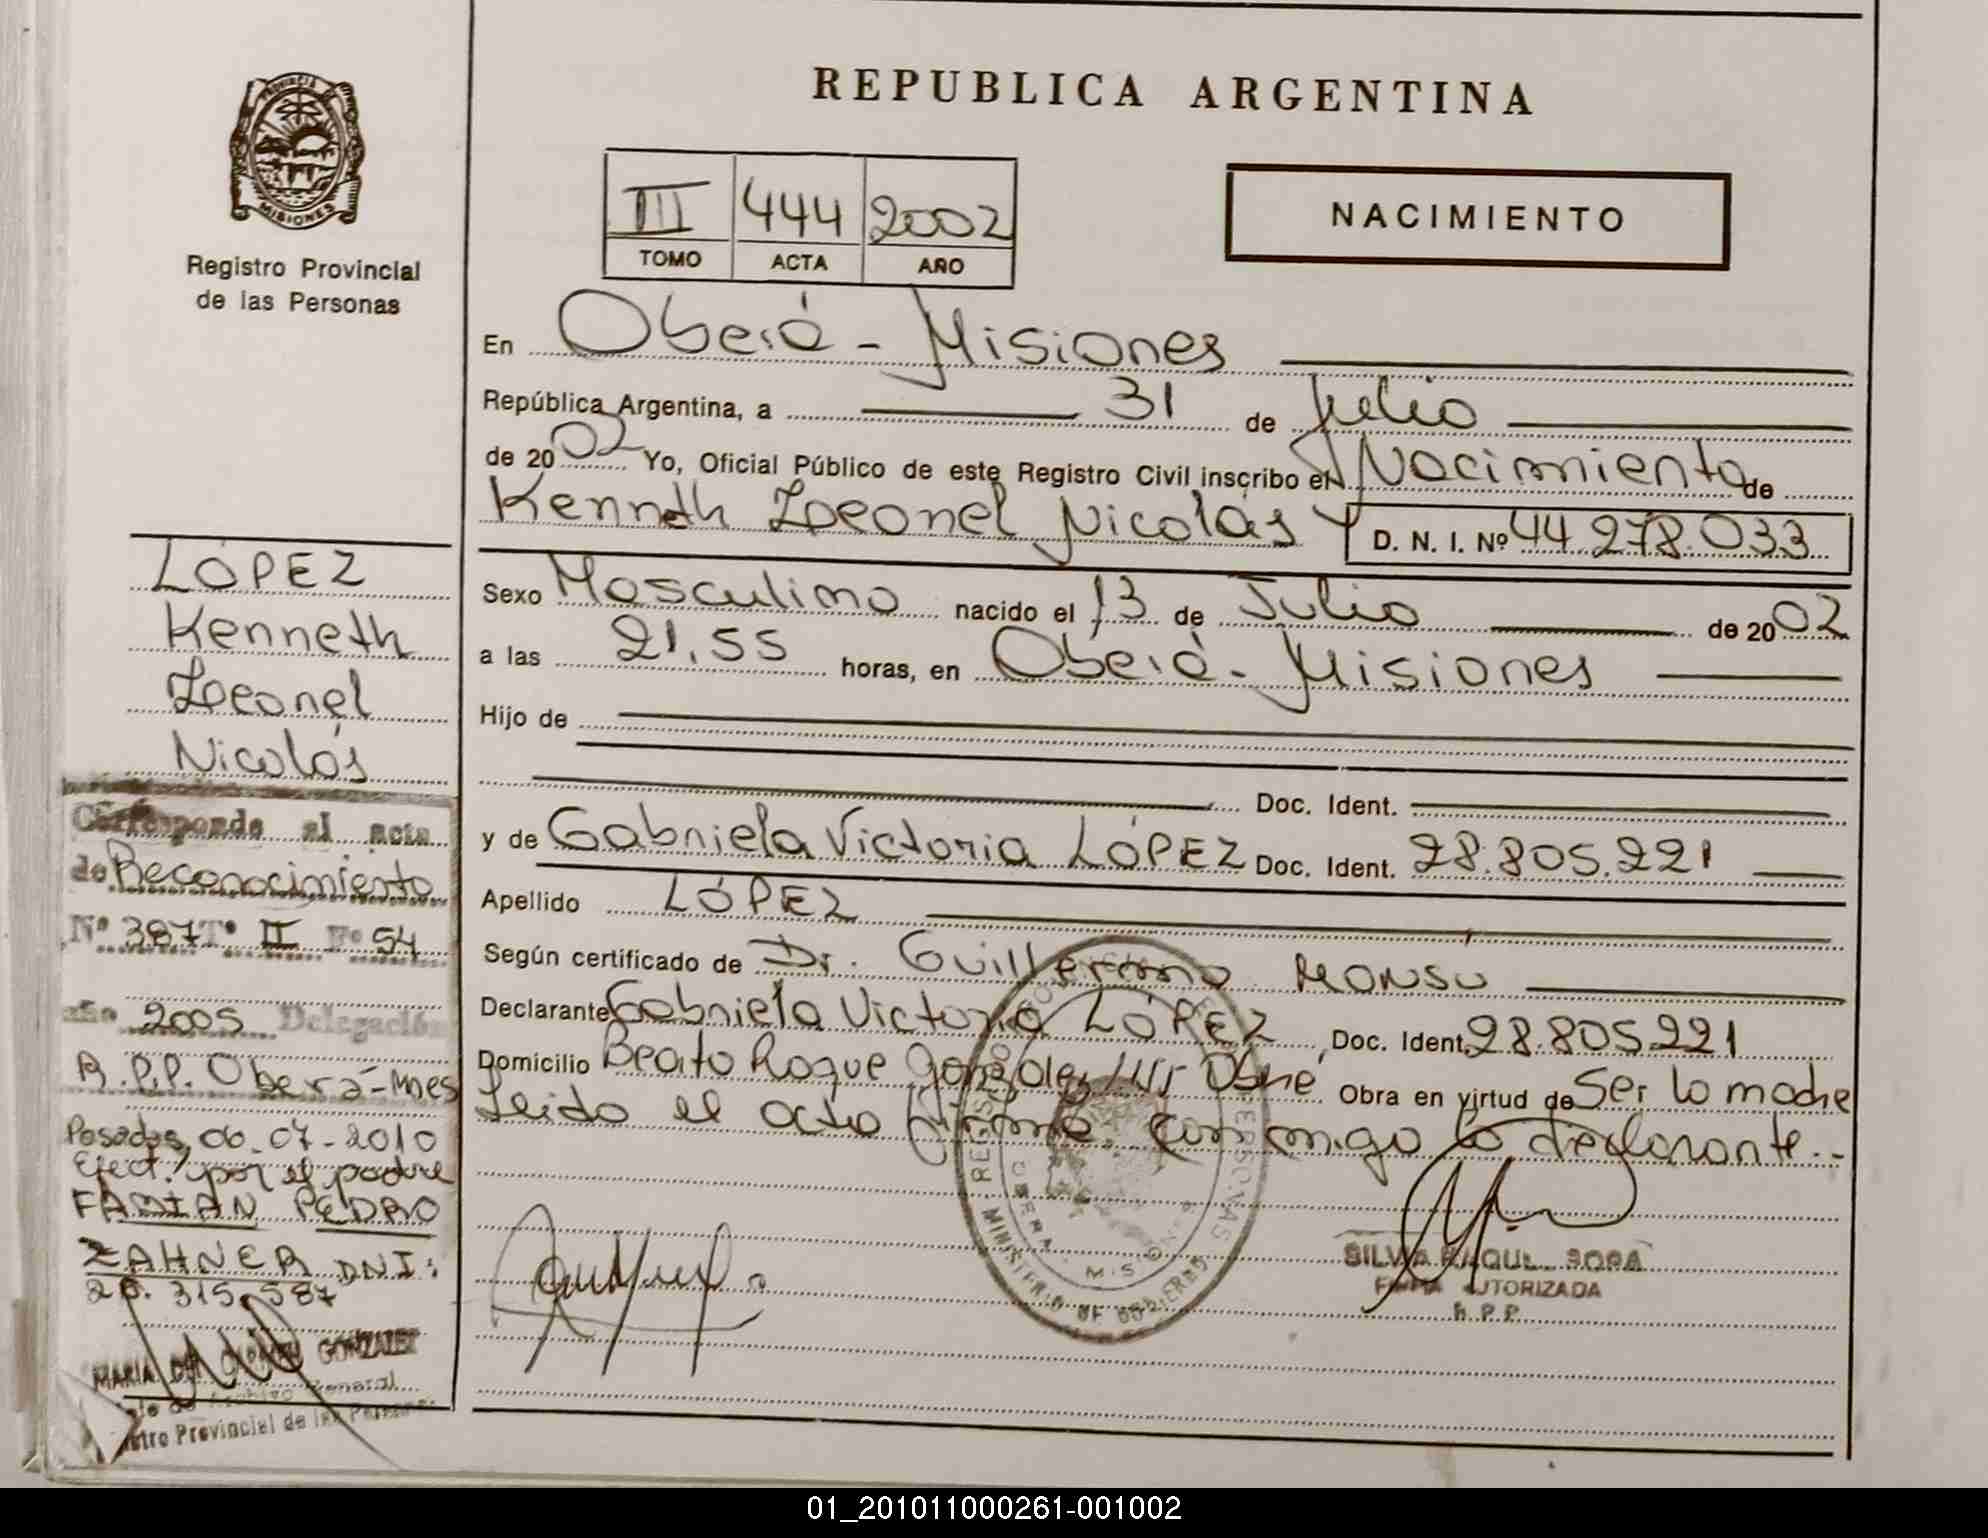 PROVINCIA DE
MISIONES
Registro Provincial
de las Personas
REPUBLICA ARGENTINA
III 444 2002
TOMO ACTA AÑO
NACIMIENTO
En Oberá - Misiones
República Argentina, a 31 de Julio
de 2002 Yo, Oficial Público de este Registro Civil inscribo el Nacimiento de
Kenneth Leonel Nicolás D. N. I. Nº 44.278.033
Sexo Masculino nacido el 13 de Julio de 2002
a las 21,55 horas, en Oberá - Misiones
Hijo de
Doc. Ident.
y de Gabriela Victoria LÓPEZ Doc. Ident. 28.805.221
Apellido LÓPEZ
Según certificado de Dr. Guillermo
Declarante Gabriela Victoria LÓPEZ, Doc. Ident. 28.805.221
Domicilio Beato Roque González Obra en virtud de Ser la madre
Leido el acta firma conmigo la declarante.-
LÓPEZ
Kenneth
Leonel
Nicolás
Corresponde al acta
de Reconocimiento
Nº 387 Tº II Fº 54
año 2005 Delegación
R.P.P. Oberá - Mnes
Posadas, 06-07-2010
Efect. por el padre
FABIAN PEDRO
ZAHNER DNI:
26.315.587
MARIA DEL CARMEN GONZALEZ
Jefe de Archivo General
Registro Provincial de las Personas
REGISTRO PERSONAS
OBERA MISIONES
MINISTERIO DE GOBIERNO
SILVIA RAQUEL SOSA
FIRMA AUTORIZADA
R.P.P.
01_201011000261-001002